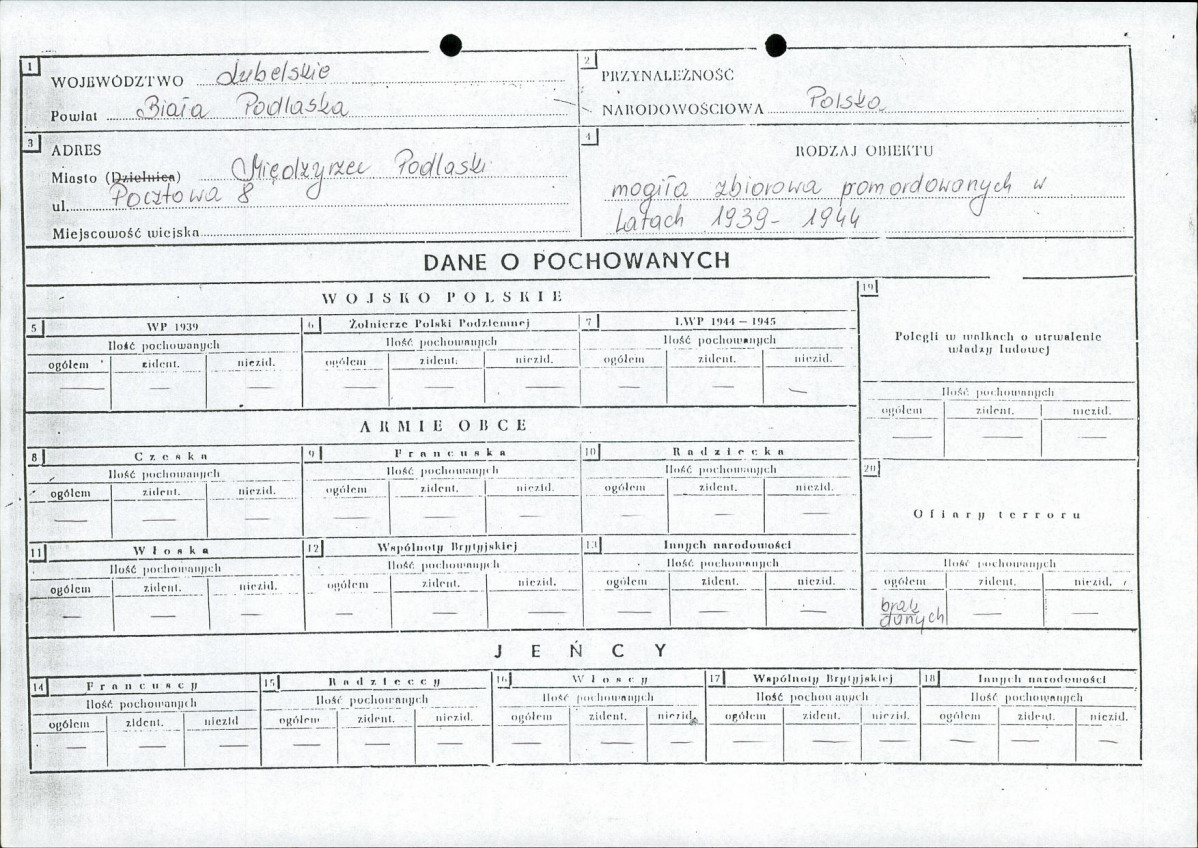 1
WOJEWÓDZTWO Lubelskie
Powiat Biała Podlaska
2
PRZYNALEŻNOŚĆ
NARODOWOŚCIOWA Polska
3
ADRES
Miasto (Dzielnica) Międzyrzec Podlaski
ul. Pocztowa 8
Miejscowość wiejska
4
RODZAJ OBIEKTU
mogiła zbiorowa pomordowanych w
latach 1939-1944
DANE O POCHOWANYCH
WOJSKO POLSKIE
5 WP 1939
Ilość pochowanych
ogółem zident. niezid.
— — —
6 Żołnierze Polski Podziemnej
Ilość pochowanych
ogółem zident. niezid.
— — —
7 LWP 1944 – 1945
Ilość pochowanych
ogółem zident. niezid.
— — —
19
Polegli w walkach o utrwalenie
władzy ludowej
Ilość pochowanych
ogółem zident. niezid.
— — —
ARMIE OBCE
8 Czeska
Ilość pochowanych
ogółem zident. niezid.
— — —
9 Francuska
Ilość pochowanych
ogółem zident. niezid.
— — —
10 Radziecka
Ilość pochowanych
ogółem zident. niezid.
— — —
11 Włoska
Ilość pochowanych
ogółem zident. niezid.
— — —
12 Wspólnoty Brytyjskiej
Ilość pochowanych
ogółem zident. niezid.
— — —
13 Innych narodowości
Ilość pochowanych
ogółem zident. niezid.
— — —
20
Ofiary terroru
Ilość pochowanych
ogółem zident. niezid.
brak
danych — —
JEŃCY
14 Francuscy
Ilość pochowanych
ogółem zident. niezid
— — —
15 Radzieccy
Ilość pochowanych
ogółem zident. niezid.
— — —
16 Włoscy
Ilość pochowanych
ogółem zident. niezid.
— — —
17 Wspólnoty Brytyjskiej
Ilość pochowanych
ogółem zident. niezid.
— — —
18 Innych narodowości
Ilość pochowanych
ogółem zident. niezid.
— — —